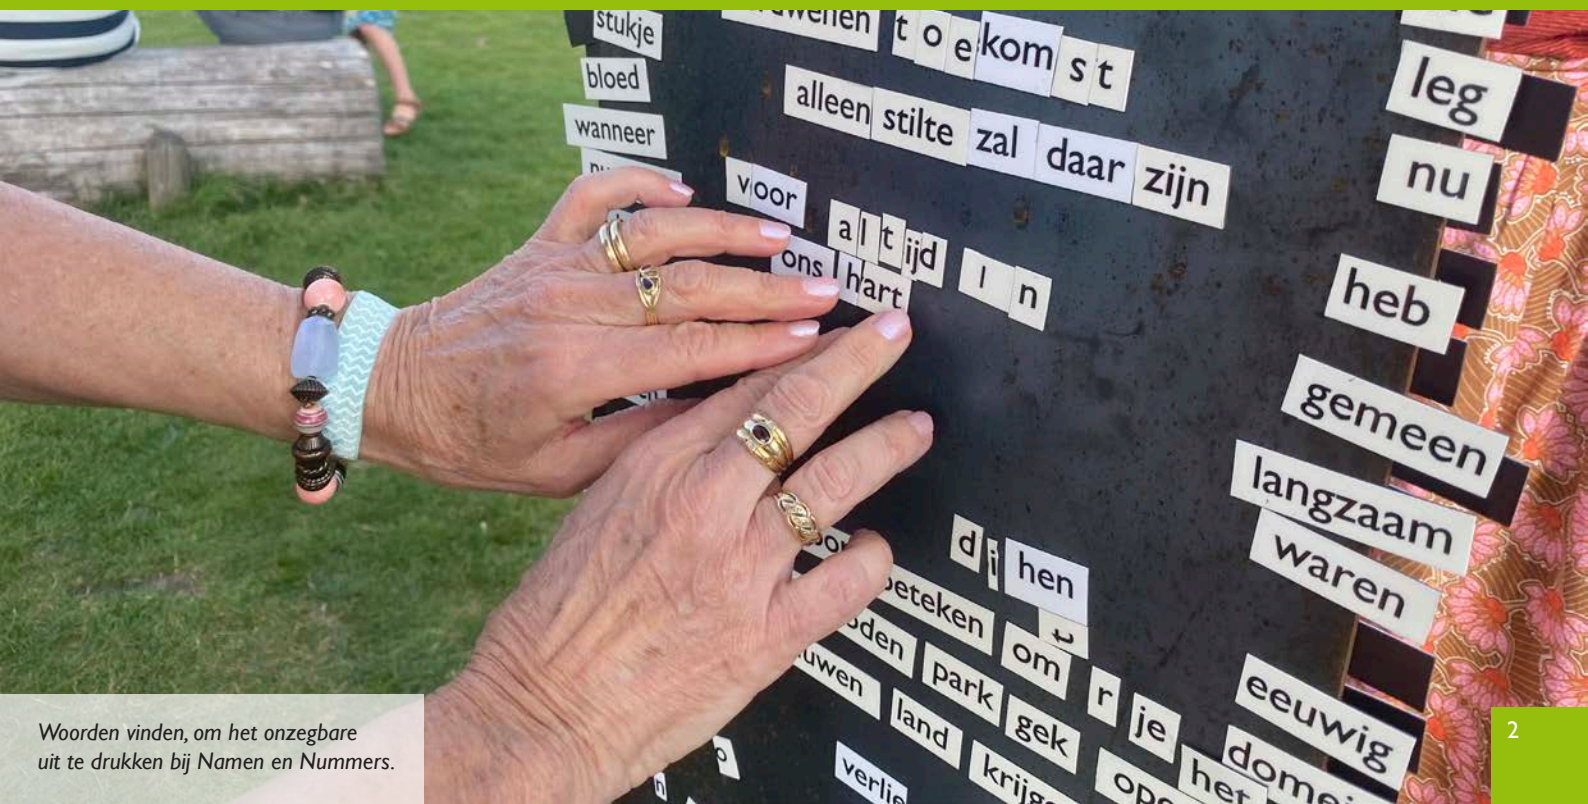 stukje
bloed
wanneer
toekomst
alleen stilte zal daar zijn
voor altijd In
ons hart
leg
nu
heb
gemeen
langzaam
waren
eeuwig
di hen
t
om r je het
park gek
land krijg
Woorden vinden, om het onzegbare
uit te drukken bij Namen en Nummers.
2